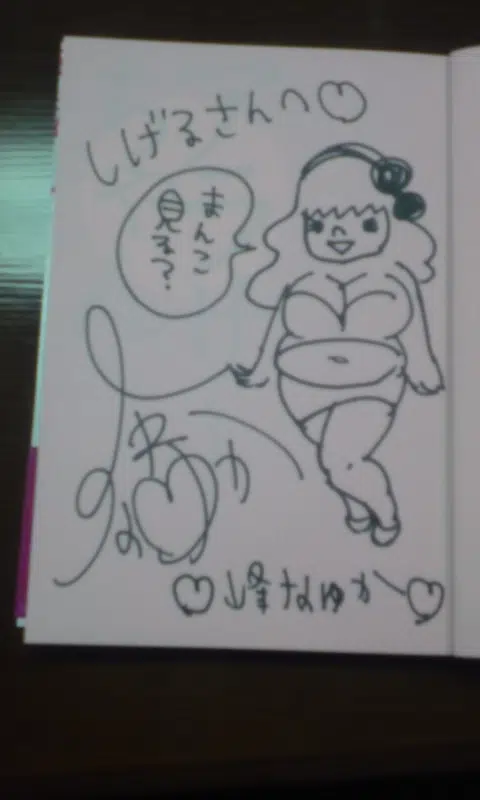 しげるさんへ♡
まんこ
見る?
♡峰なゆか♡